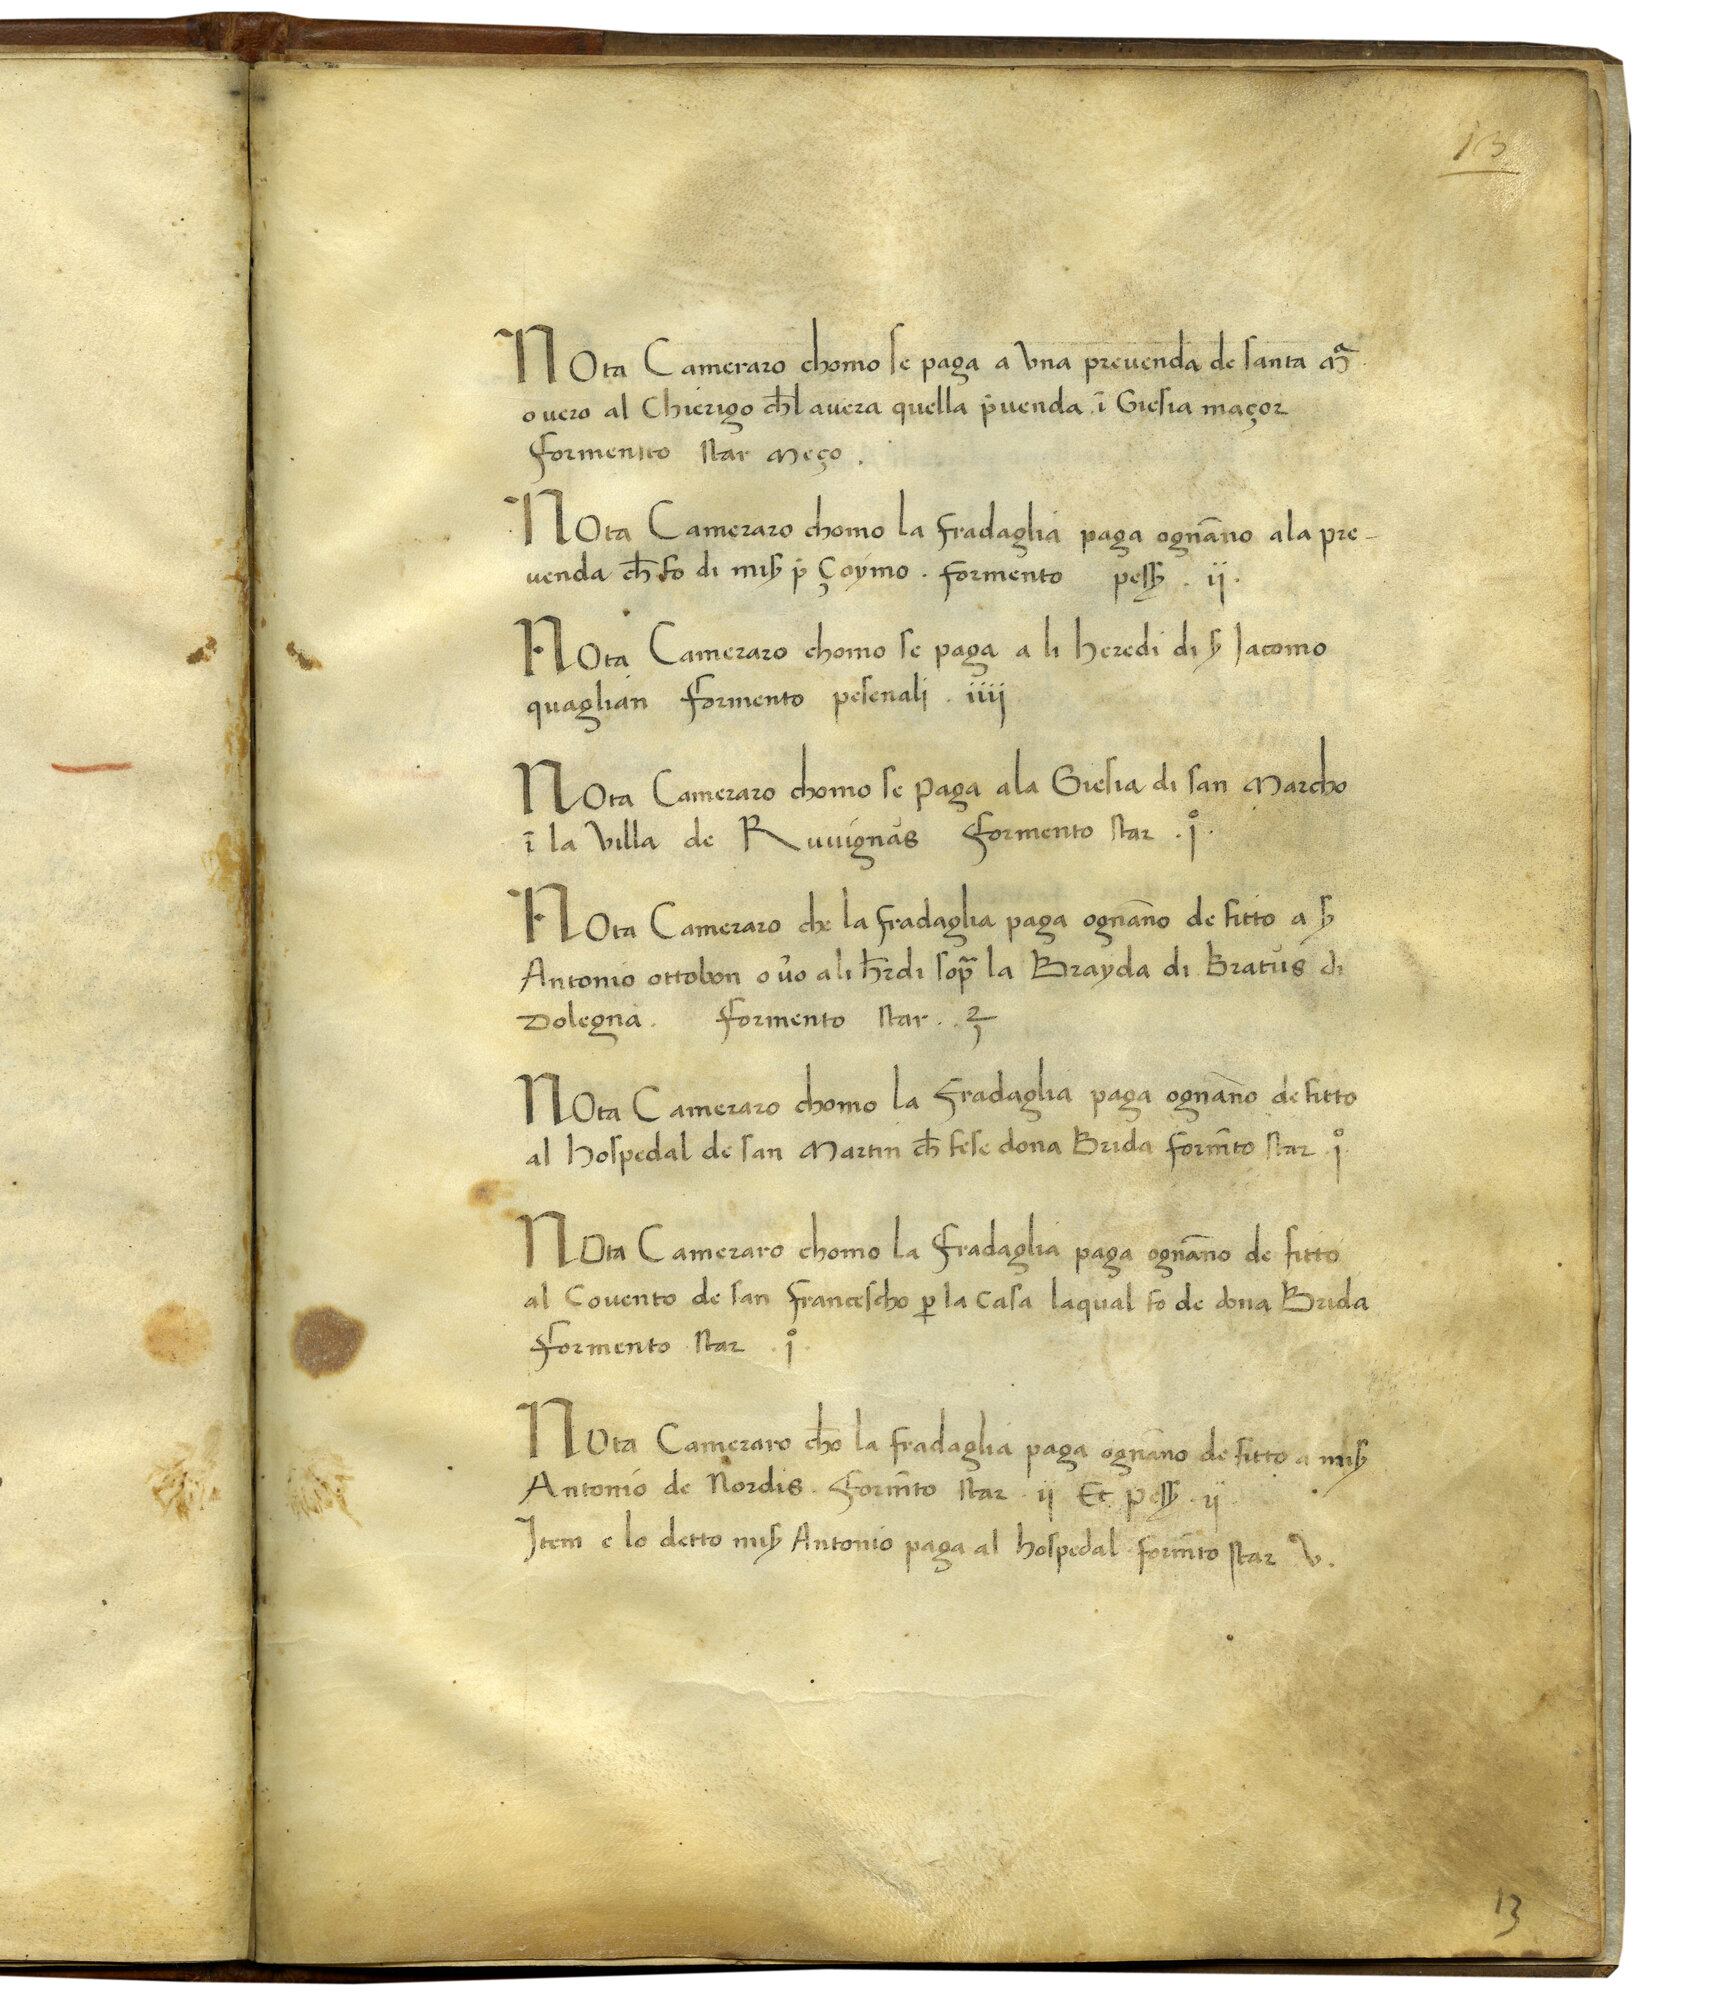 13
Nota Cameraro chomo se paga a Vna preuenda de santa m̄a
o uero al Chierigo ch̄l auera quella p̄uenda . ī Giesia maçor
formento star meço .
Nota Cameraro chomo la fradaglia paga ogn̄ano a la pre-
uenda ch̄ fo di miß p̄ Çoymo . formento peß . ij .
Nota Cameraro chomo se paga a li heredi di ß Jacomo
quaglian formento pesenali . iiij
Nota Cameraro chomo se paga a la Giesia di san Marcho
ī la Villa de Ruuignas formento star . j° .
Nota Cameraro che la fradaglia paga ogn̄ano de fitto a ß
Antonio ottobon o ůo a li h̄rdi sop̄ la Brayda di Bratus di
Dolegna . formento star . .
Nota Cameraro chomo la fradaglia paga ogn̄ano de fitto
al hospedal de san Martin ch̄ fese dona Brida form̄to star j°
Nota Cameraro chomo la fradaglia paga ogn̄ano de fitto
al Couento de san francescho ꝑ la Casa la qual fo de dona Brida
formento star . j° .
Nota Cameraro ch̄o la fradaglia paga ogn̄ano de fitto a miß
Antonio de Nordis . form̄to star . ij Et peß . ij
Item e lo detto miß Antonio paga al hospedal form̄to star V .
13